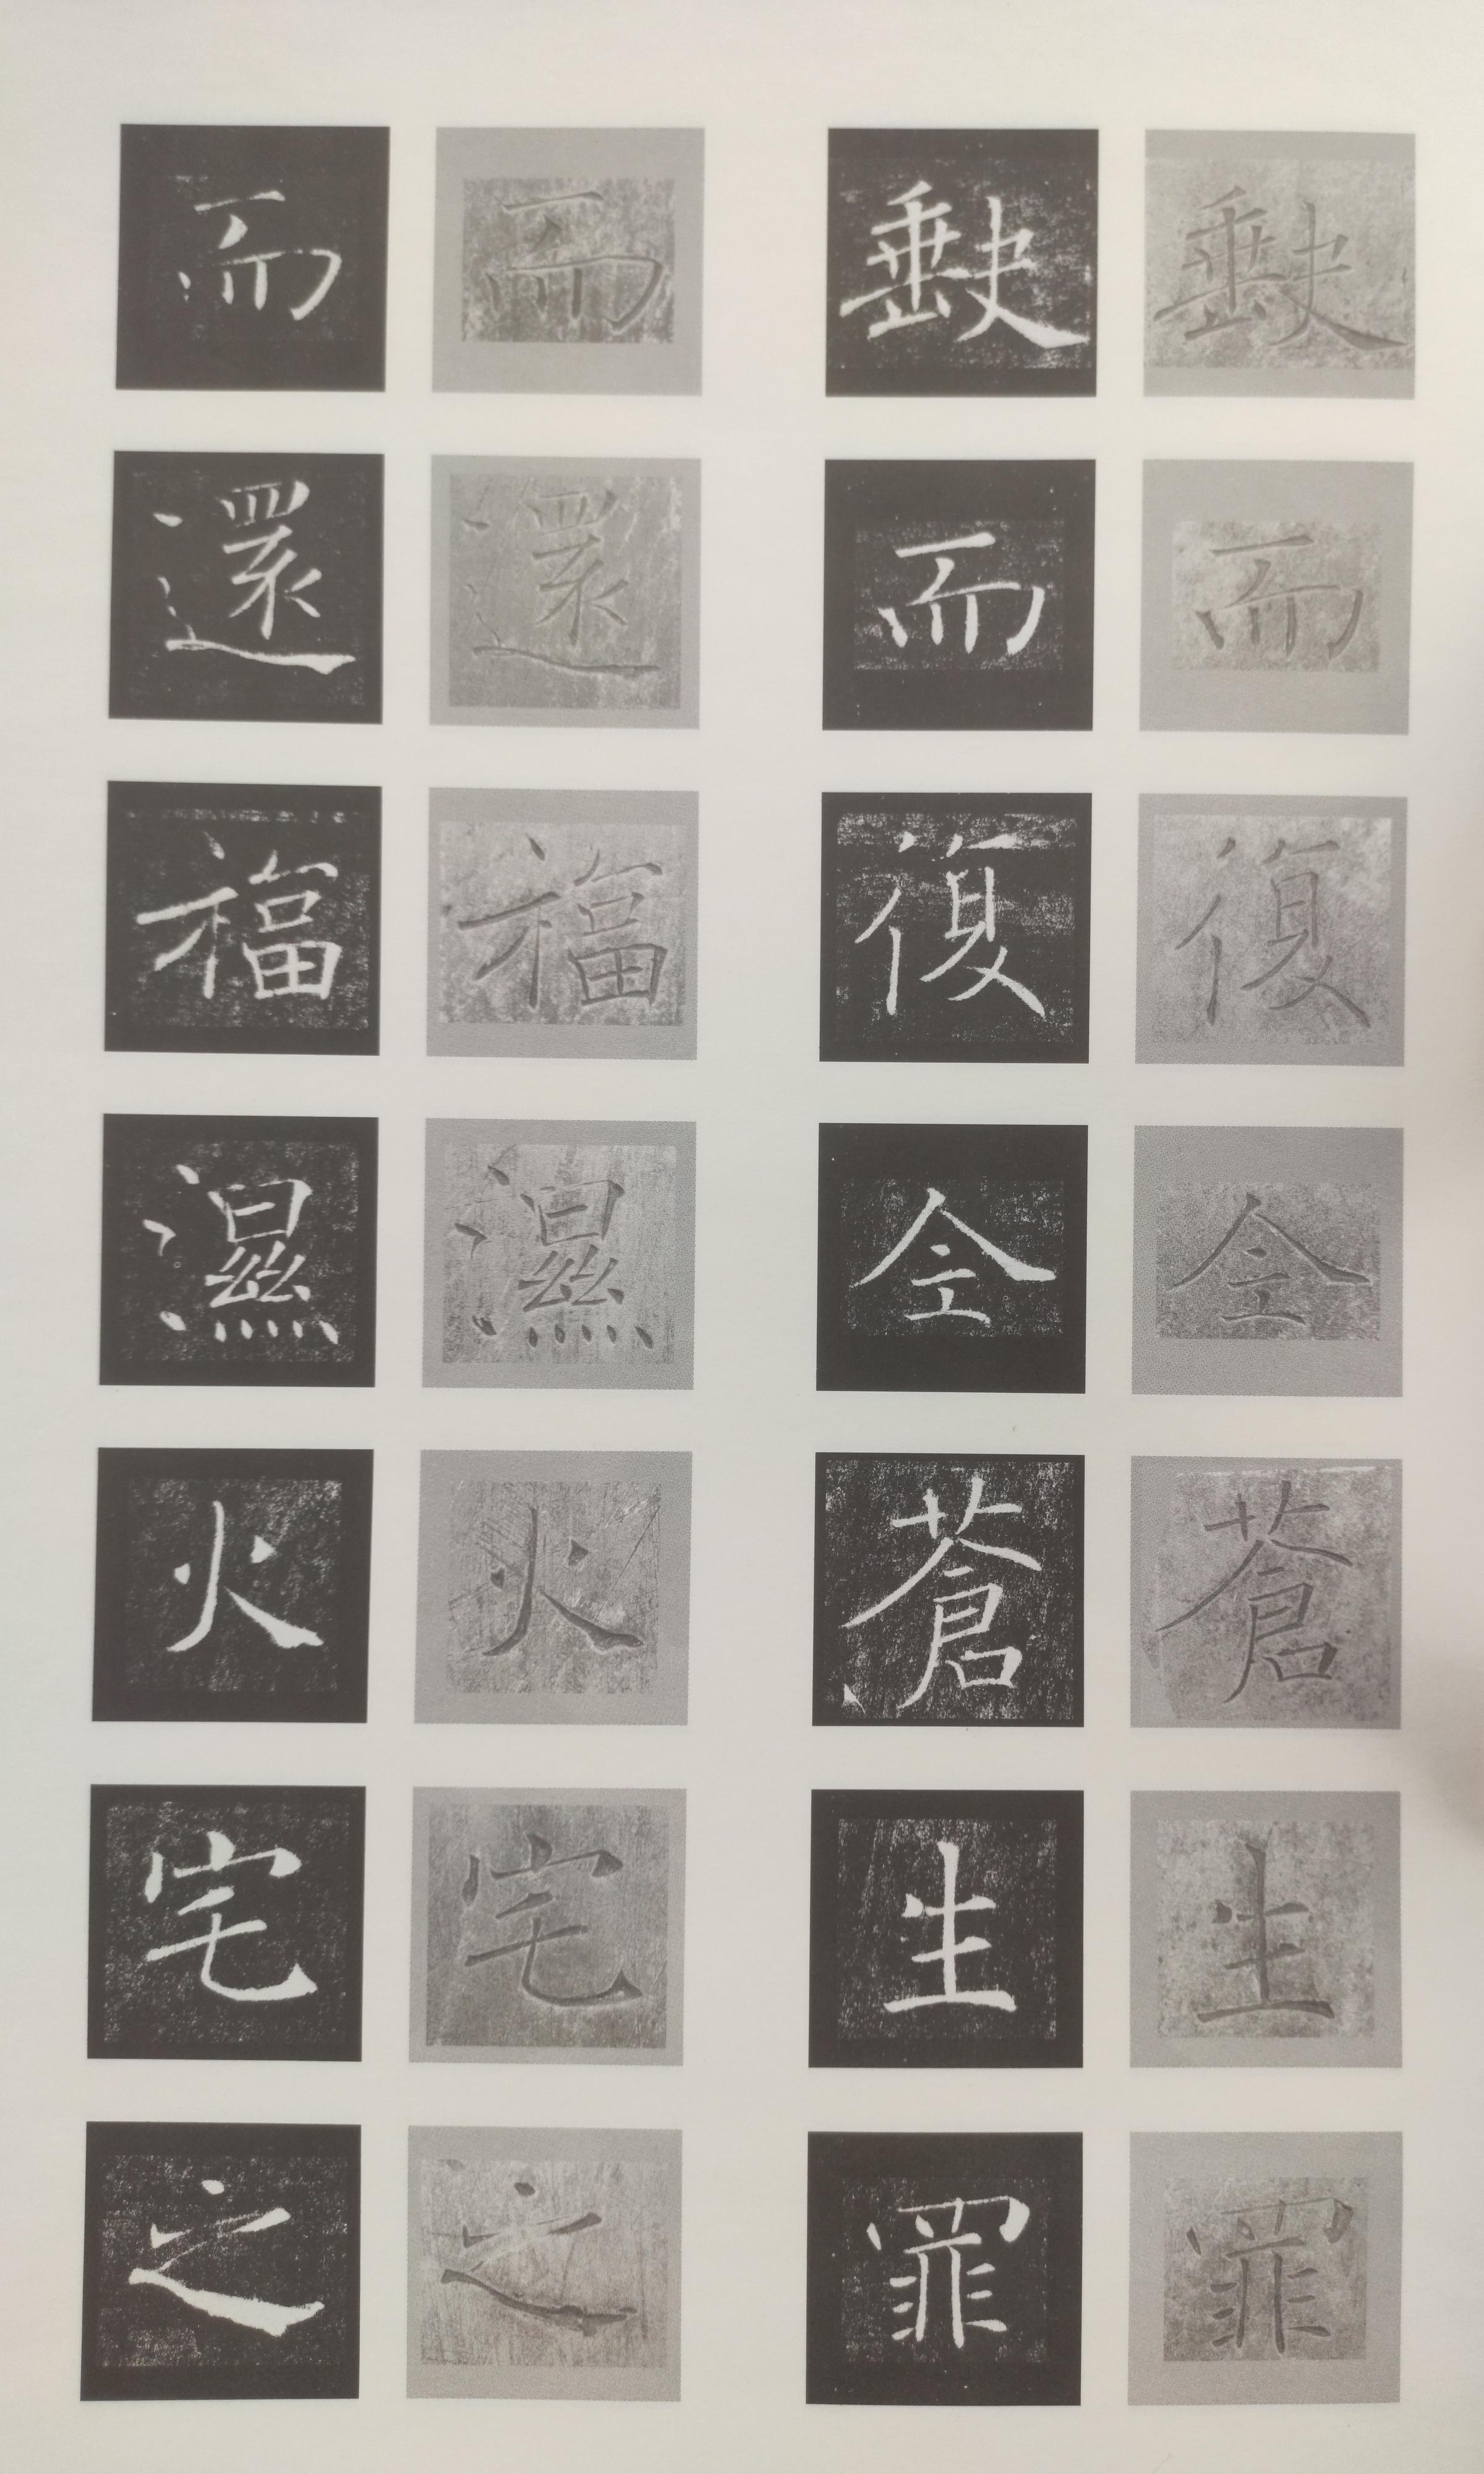 缺而復全蒼生罪
缺而復全蒼生罪
而還福濕火宅之
而還福濕火宅之